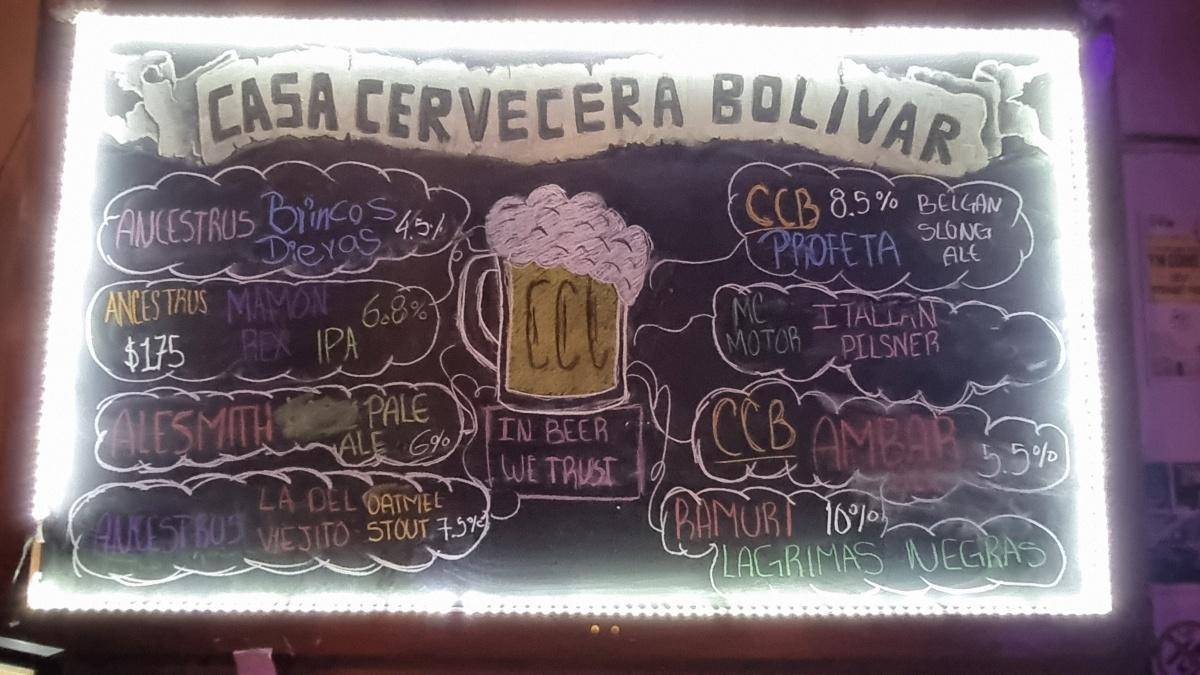 CASA CERVECERA BOLIVAR
ANCESTRUS Brincos 4.5%
Dieras
ANCESTRUS MAMON 6.8%
$175 REX IPA
ALESMITH PALE
ALE 6%
ANCESTRUS LA DEL OATMEL
VIEJITO STOUT 7.5%
CCC
IN BEER
WE TRUST
CCB 8.5% BELGAN
PROFETA SLONG
ALE
MC ITALIAN
MOTOR PILSNER
CCB AMBAR 5.5%
RAMURI 10%
LAGRIMAS NEGRAS